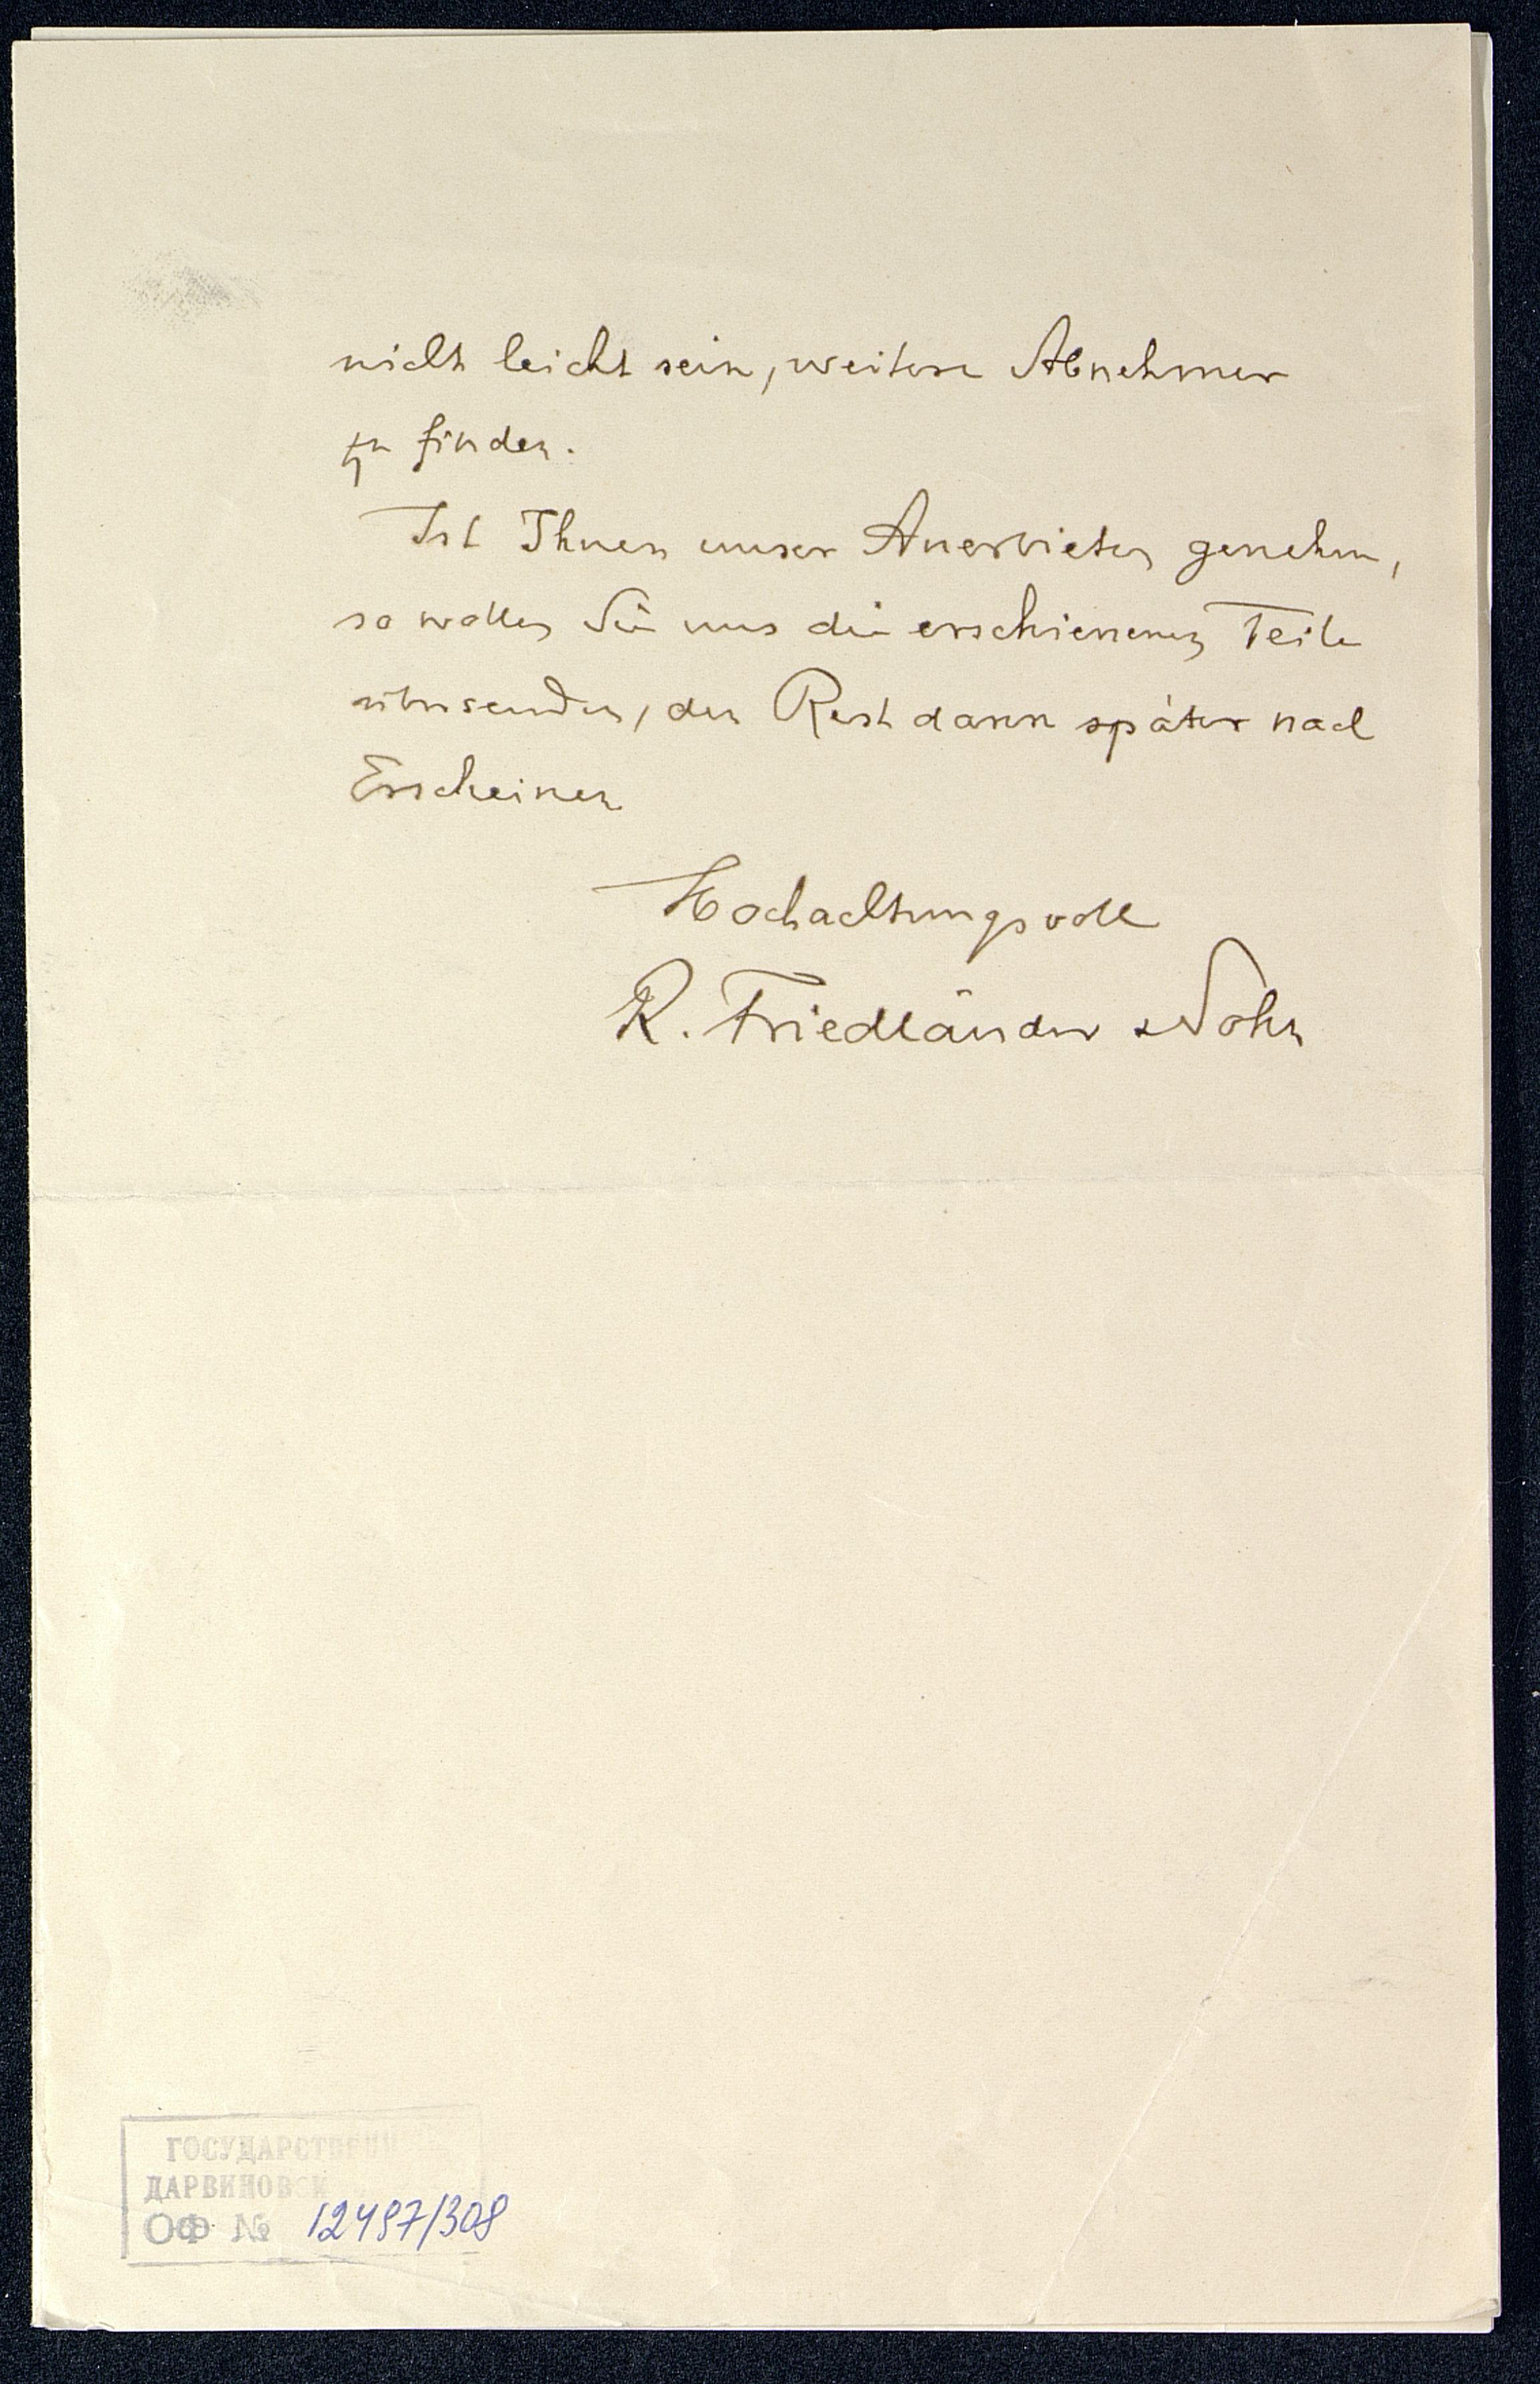 nicht leicht sein, weitere Abnehmer
zu finden.
Ist Ihnen unser Anerbieten genehm,
so wollen Sie uns die erschienenen Teile
übersenden, den Rest dann später nach
Erscheinen
Hochachtungsvoll
R. Friedländer & Sohn
ГОСУДАРСТВЕНН
ДАРВИНОВСК
ОФ № 12497/308